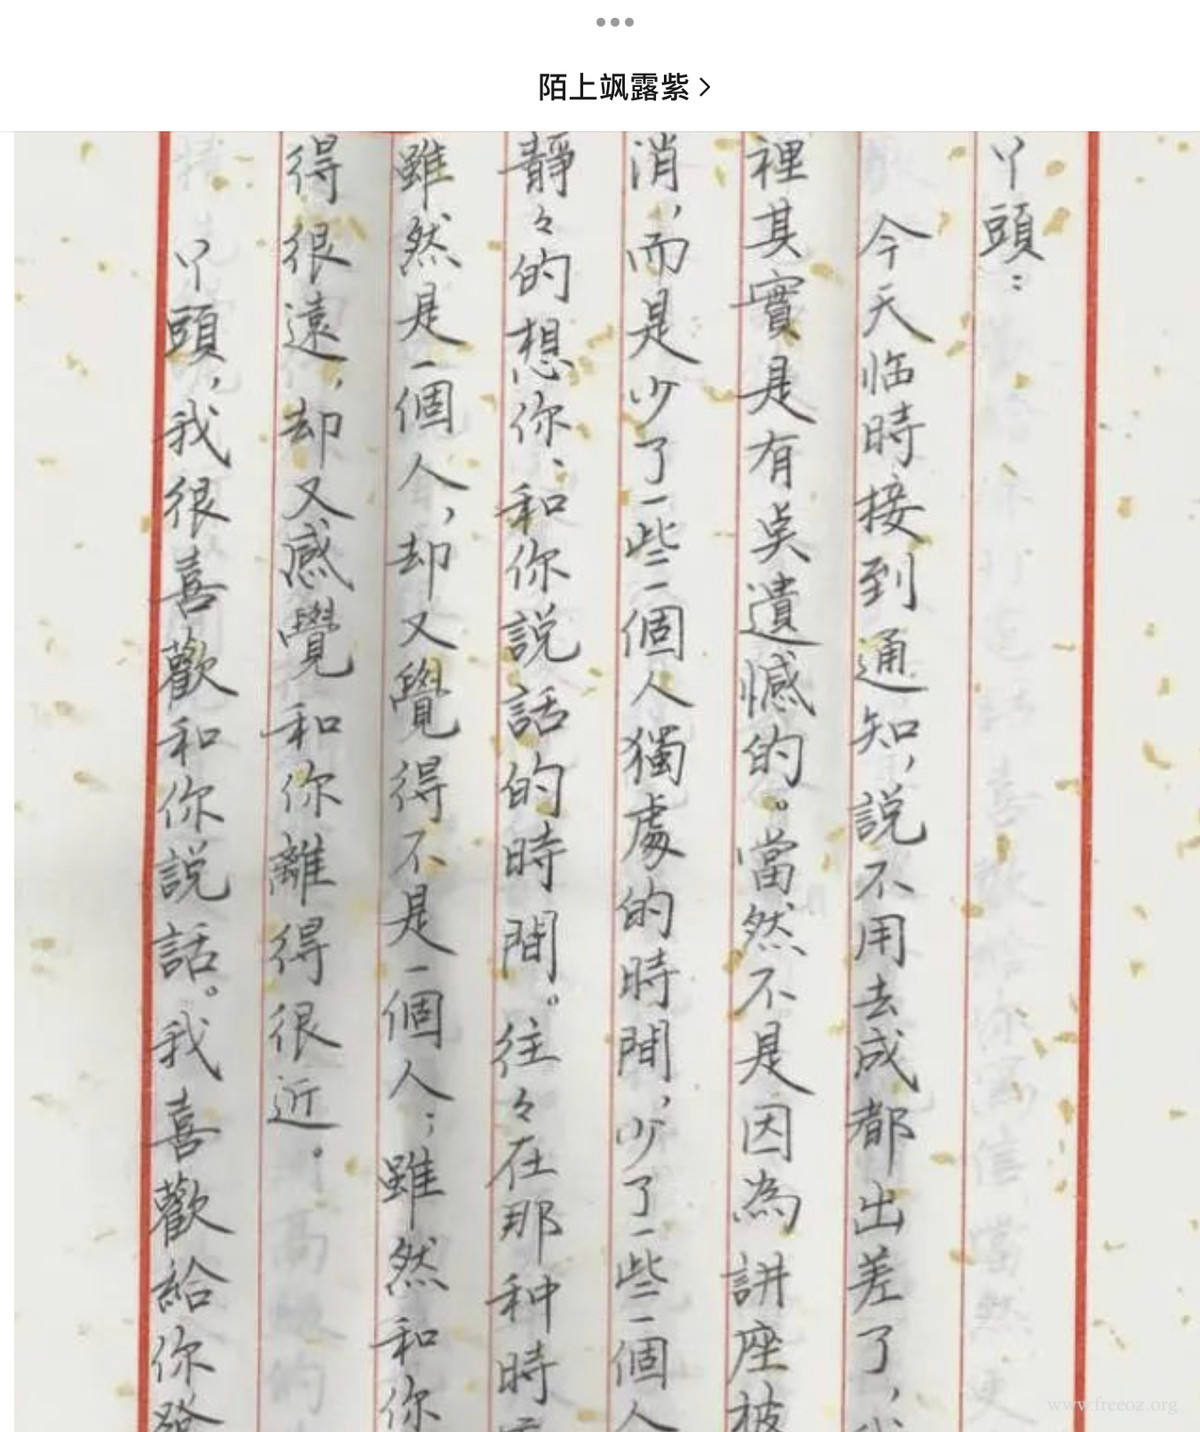 陌上飒露紫
丫頭：
今天临時接到通知，説不用去成都出差了，
裡其實是有奌遺憾的。當然不是因為講座被
消，而是少了一些一個人獨處的時間，少了一些一個人
靜々的想你、和你説話的時間。往々在那种時
雖然是一個人，却又覺得不是一個人；雖然和你
得很遠，却又感覺和你離得很近。
丫頭，我很喜歡和你説話。我喜歡給你發
www.freeoz.org